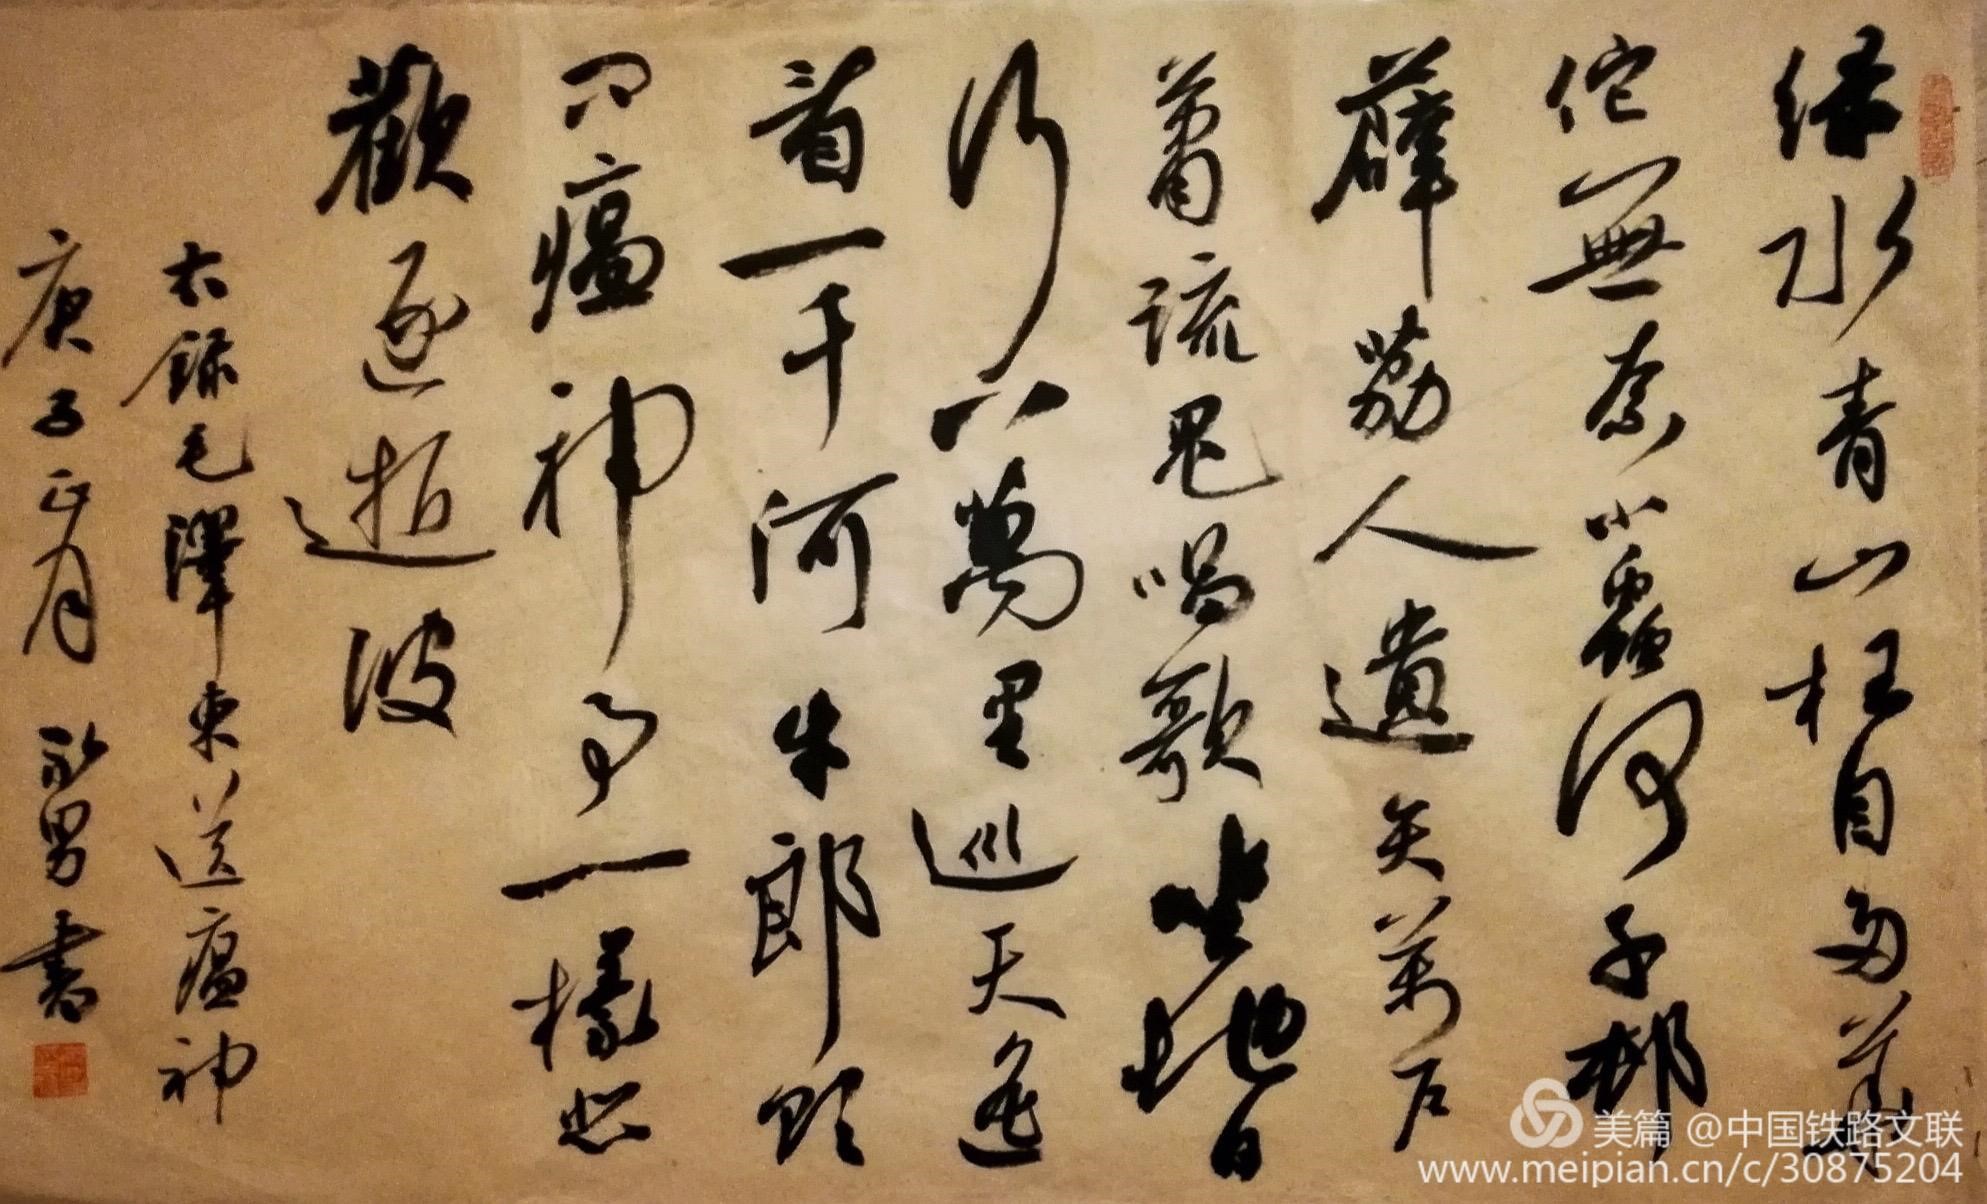 绿水青山枉自多華
佗無奈小蟲何千邨
薜荔人遺矢萬戶
萧疏鬼唱歌坐地日
行八萬里巡天遙
看一千河牛郎欲
问瘟神事一樣悲
歡逐逝波
右録毛澤東送瘟神
庚子正月 男書
美篇 @中国铁路文联
www.meipian.cn/c/30875204